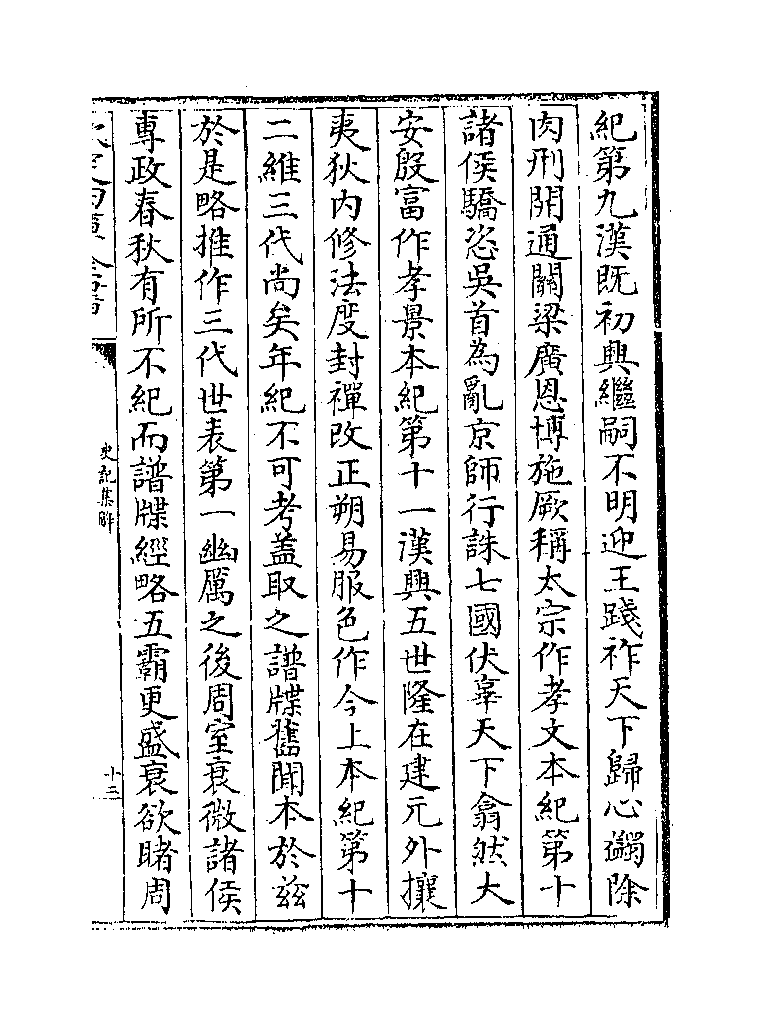 紀第九漢既初興繼嗣不明迎王踐祚天下歸心蠲除
肉刑開通關梁廣恩博施厥稱太宗作孝文本紀第十
諸侯驕恣吳首為亂京師行誅七國伏辜天下翕然大
安殷富作孝景本紀第十一漢興五世隆在建元外攘
夷狄内修法度封禪改正朔易服色作今上本紀第十
二維三代尚矣年紀不可考蓋取之譜牒舊聞本於兹
於是略推作三代世表第一幽厲之後周室衰微諸侯
專政春秋有所不紀而譜牒經略五霸更盛衰欲睹周
史記集解
十三